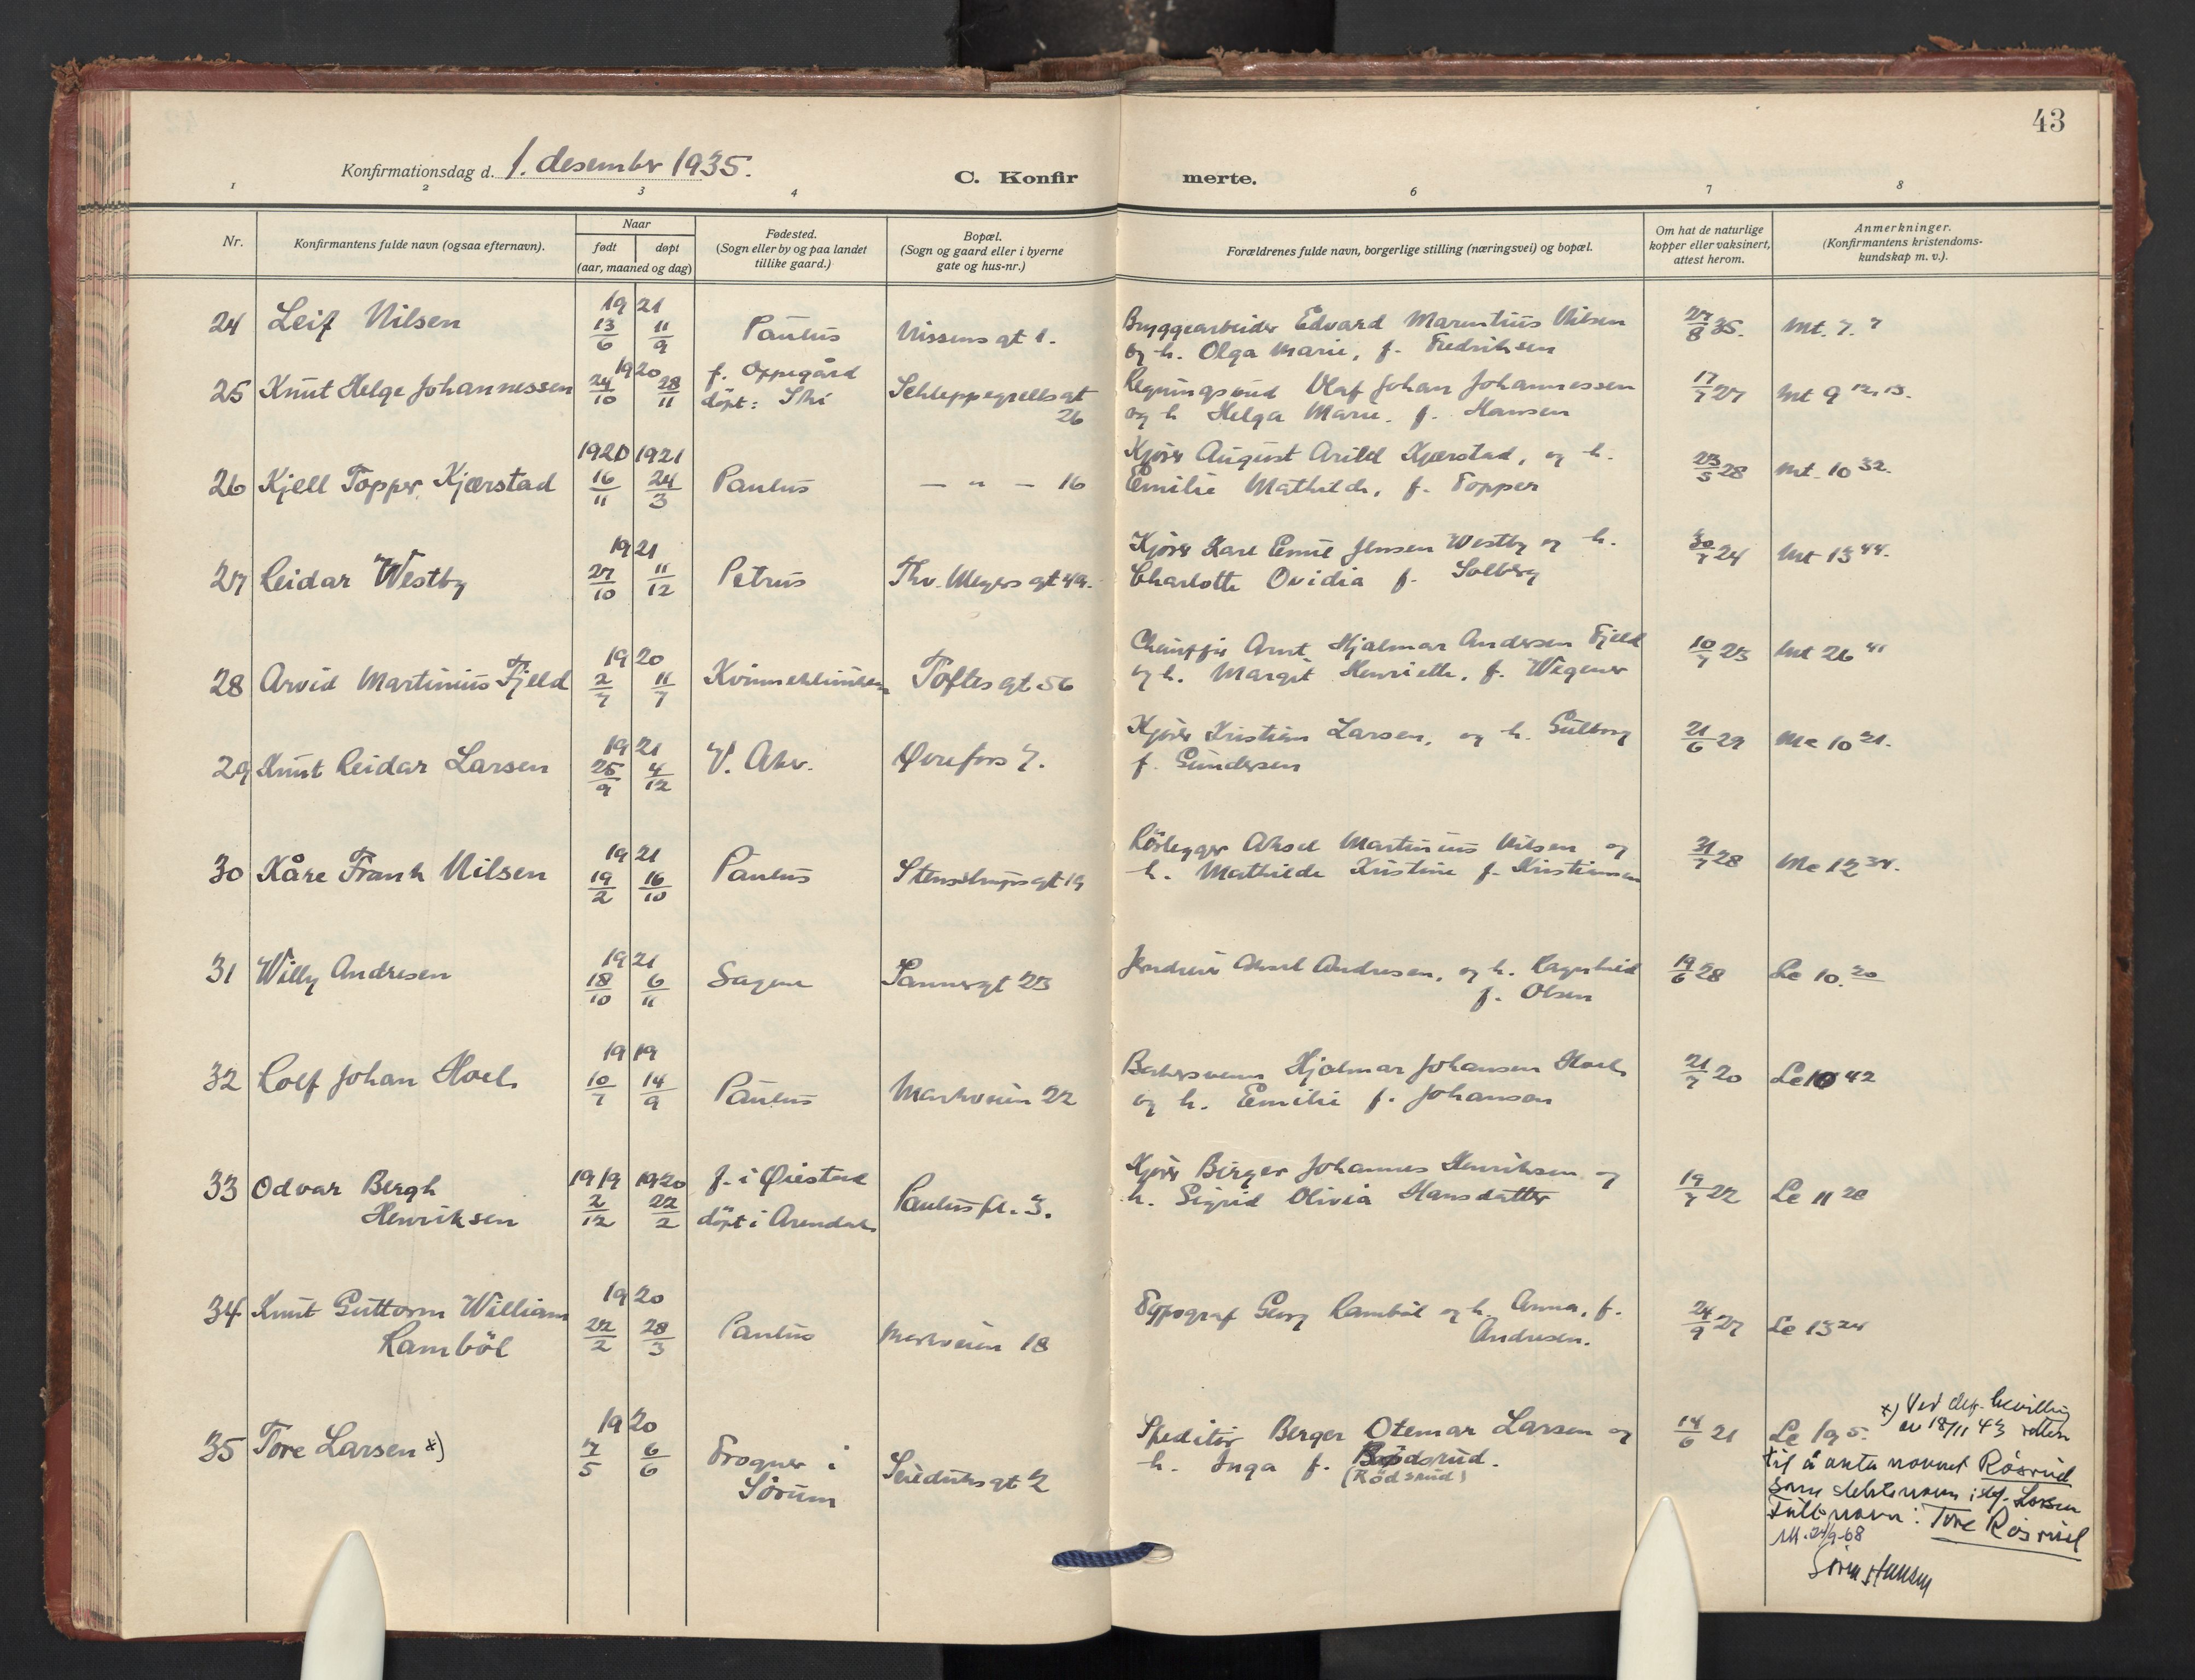 43
Konfirmationsdag d. 1. desember 1935.
C. Konfirmerte.
1 2 3 4 6 7 8
Nr.
Konfirmantens fulde navn (ogsaa efternavn).
Naar
født døpt
(aar, maaned og dag)
Fødested.
(Sogn eller by og paa landet
tillike gaard.)
Bopæl.
(Sogn og gaard eller i byerne
gate og hus-nr.)
Forældrenes fulde navn, borgerlige stilling (næringsvei) og bopæl.
Om hat de naturlige
kopper eller vaksinert,
attest herom.
Anmerkninger.
(Konfirmantens kristendoms-
kundskap m. v.).
24 Leif Nilsen 1921 13/6 11/9 Paulus Nissens gt 1.
Bryggearbeider Edvard Marentius Nilsen
og h. Olga Marie, f. Fredriksen
27/8 35. Mt. 7. 7
25 Knut Helge Johannessen 1920 24/10 28/11 f. Oppegård
døpt: Ski
Schleppegrells gt
26
Regningsbud Olaf Johan Johannessen
og h Helga Marie. f. Hansen
17/7 27 Mt 9 12, 13.
26 Kjell Topper Kjærstad 1920 16/11 1921 24/3 Paulus — " — 16
Kjører August Arild Kjærstad, og h.
Emilie Mathilde, f. Topper
23/5 28 Mt. 10 32.
27 Reidar Westby 1921 27/10 11/12 Petrus Thv. Meyers gt 49.
Kjører Karl Emil Jensen Westby og h.
Charlotte Ovidia f. Solberg
30/7 24 Mt 13 44.
28 Arvid Martinius Fjeld 1920 2/7 11/7 Kvinneklinikken Toftes gt 56
Chauffør Arnt Hjalmar Andersen Fjeld
og h. Margit Henriette, f. Wegener
10/7 23 Mt 26 41
29 Knut Reidar Larsen 1921 25/9 4/12 V. Aker. Øvrefoss 7.
Kjører Kristian Larsen, og h. Gulborg
f. Gundersen
21/6 29 Mc 10 21.
30 Kåre Frank Nilsen 1921 19/2 16/10 Paulus Stenstrups gt 19
Rørlegger Aksel Martinius Nilsen og
h. Mathilde Kristine f. Kristiansen
31/7 28 Mc 12 34.
31 Willy Andresen 1921 18/10 6/11 Sagene Sannergt 23
Aksel Andresen, og h. Ragnhild
f. Olsen
19/6 28 Lc 10. 20
32 Rolf Johan Hoel 1919 10/7 14/9 Paulus Markveien 22
Bakersvenn Hjalmar Johansen Hoel
og h. Emilie f. Johansen
21/7 20 Lc 10 42
33 Odvar Bergh
Henriksen
1919 2/12 1920 22/2 f. i Øiestad
døpt i Arendal
Paulus pl. 3.
Kjører Birger Johannes Henriksen og
h. Sigrid Olivia Hansdatter
19/7 22 Lc 11 28
34 Knut Guttorm William
Ramböl
1920 22/2 28/3 Paulus Markveien 18
Typograf Georg Ramböl og h. Anna, f.
Andresen.
24/9 27 Lc 13 24
35 Tore Larsen x) 1920 7/5 6/6 Frogner i
Sørum
Seilduksgt 2
Speditør Berger Otemar Larsen og
h. Inga f. Rødsrud.
(Rødsrud)
14/6 21 Lc 19 5.
x) Ved dep. bevilling
av 18/11 43 retten
til å anta navnet Røsrud
som slektsnavn istf. Larsen
Fullt navn: Tore Røsrud
24/9-68
Hansen